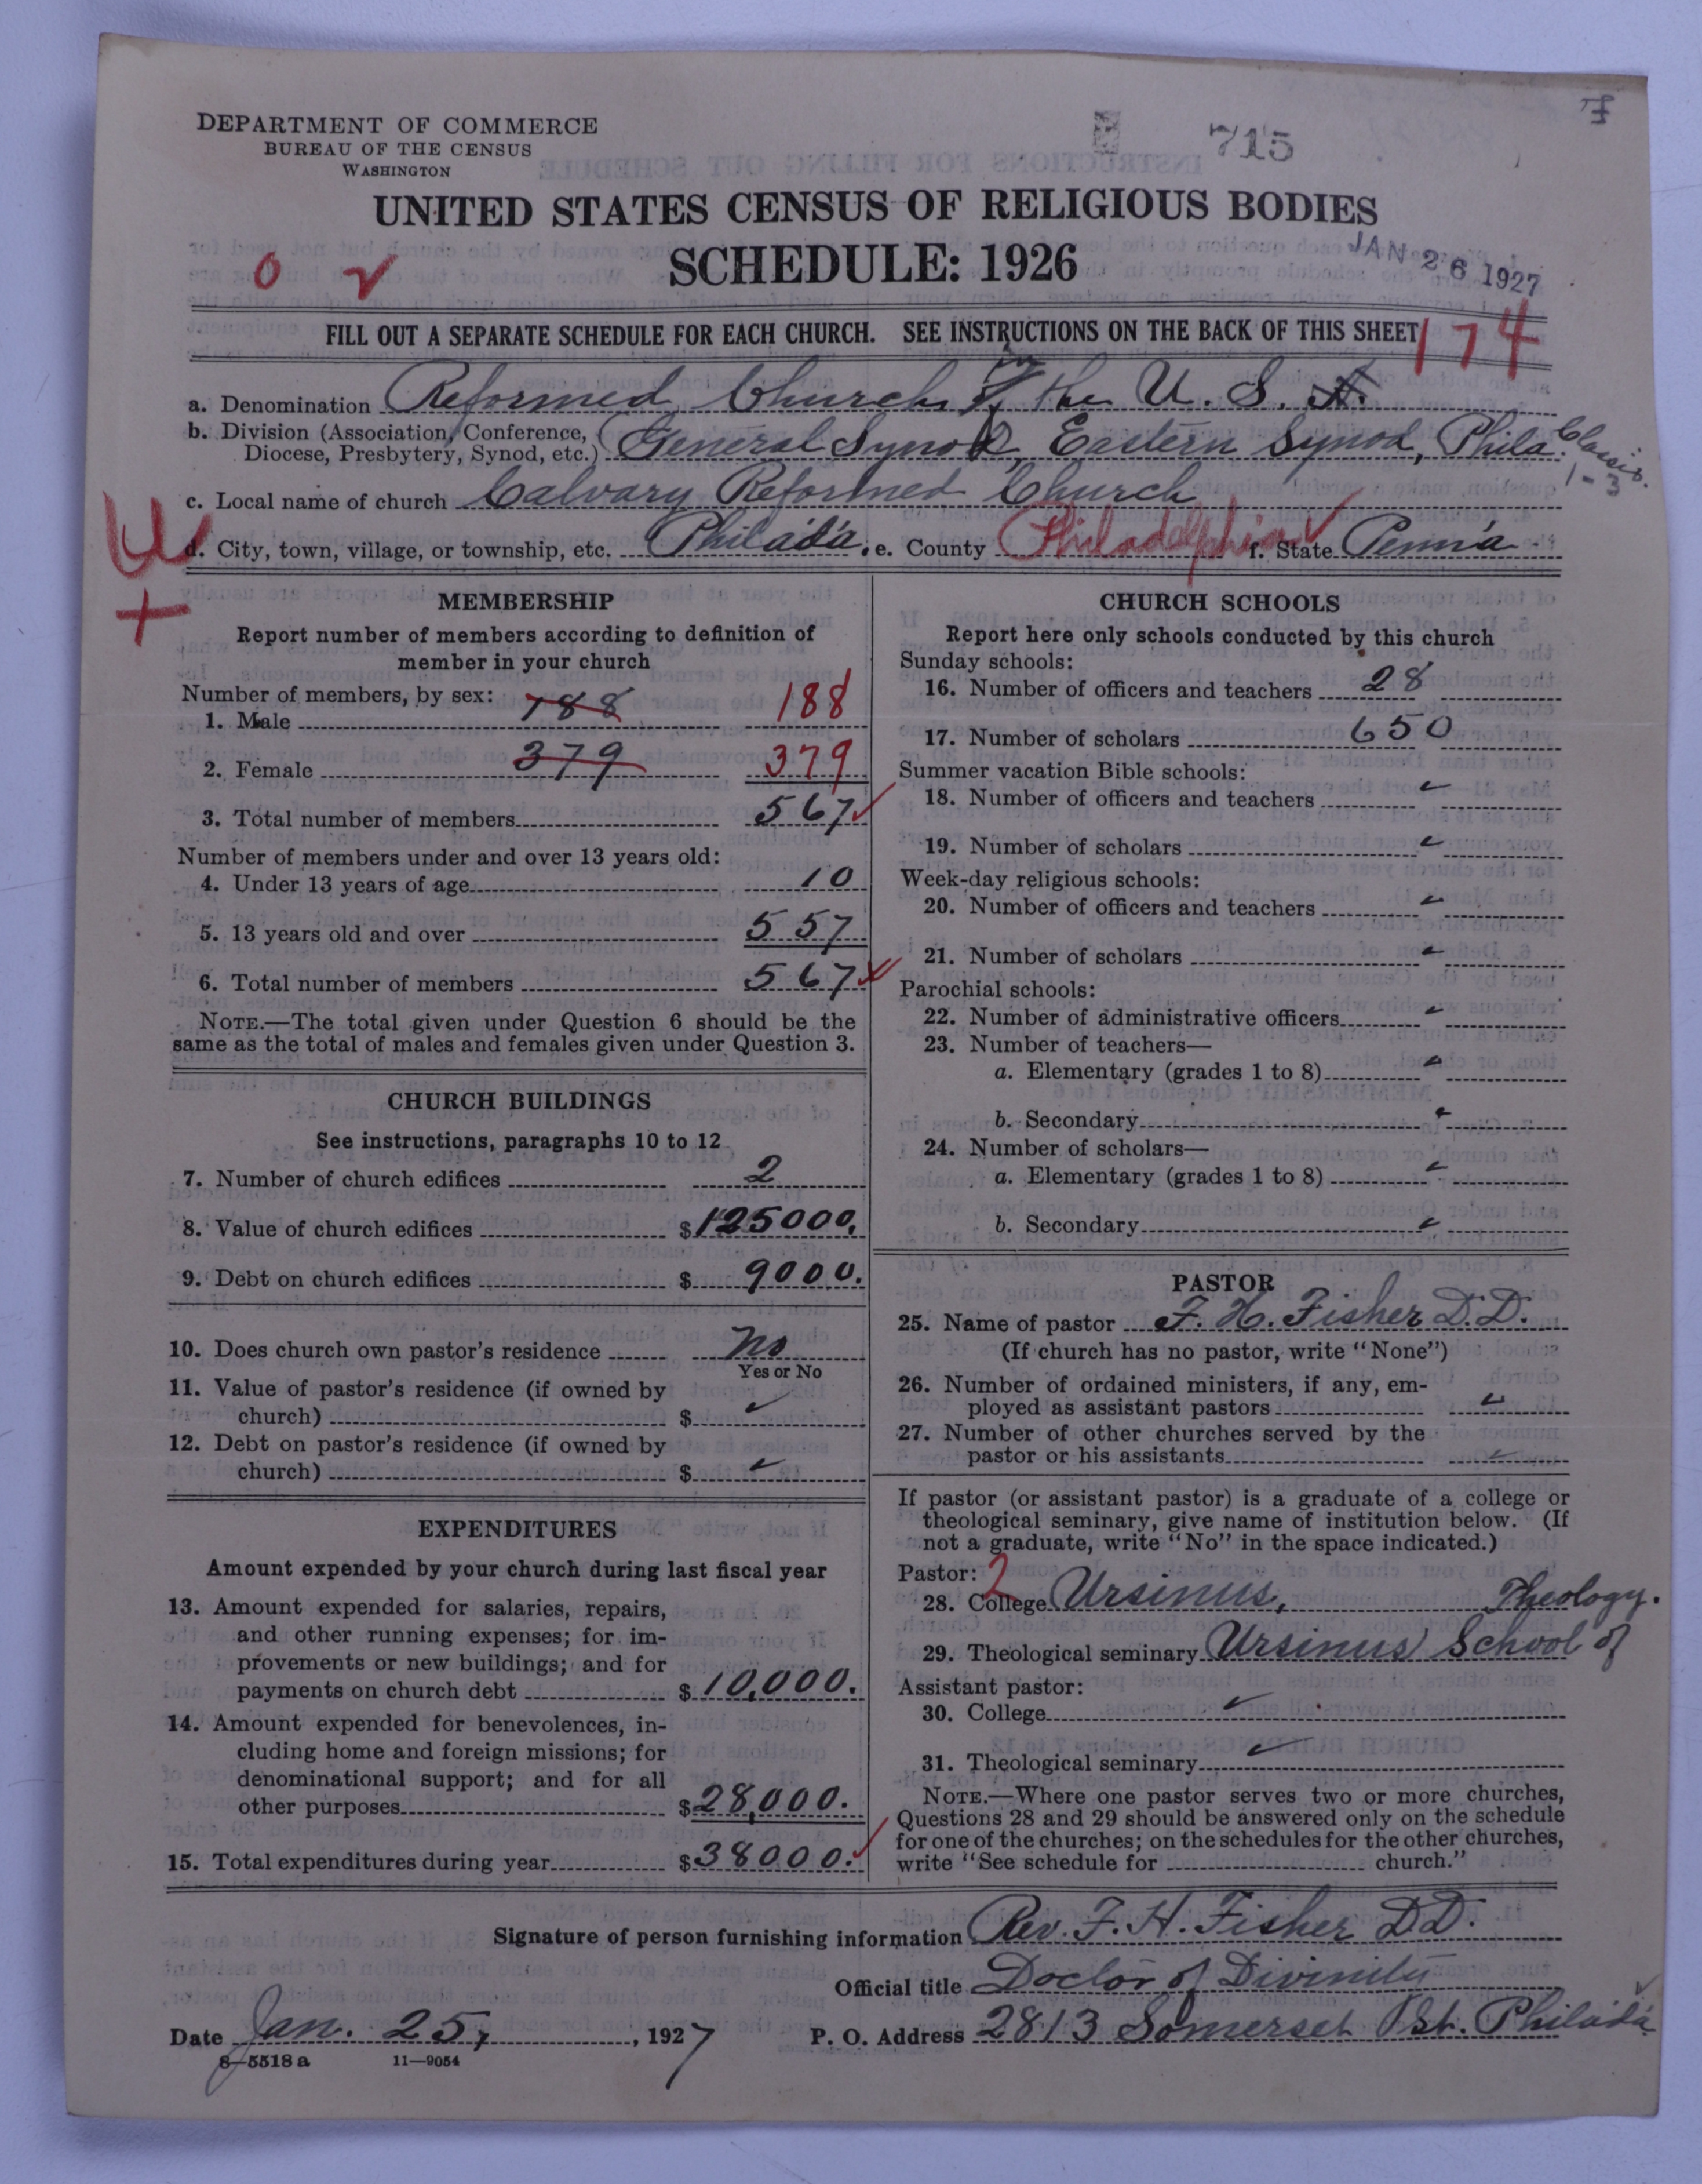 DEPARTMENT OF COMMERCE
BUREAU OF THE CENSUS
WASHINGTON
715
UNITED STATES CENSUS OF RELIGIOUS BODIES
SCHEDULE: 1926
JAN 26 1927
FILL OUT A SEPARATE SCHEDULE FOR EACH CHURCH. SEE INSTRUCTIONS ON THE BACK OF THIS SHEET
174
a. Denomination Reformed Church in the U. S. A.
b. Division (Association, Conference, Diocese, Presbytery, Synod, etc.) General Synod, Eastern Synod, Phila. Classis.
1-3
c. Local name of church Calvary Reformed Church
d. City, town, village, or township, etc. Philada. e. County Philadelphia f. State Penna
MEMBERSHIP
Report number of members according to definition of
member in your church
Number of members, by sex:
1. Male 188 188
2. Female 379 379
3. Total number of members 567
Number of members under and over 13 years old:
4. Under 13 years of age 10
5. 13 years old and over 557
6. Total number of members 567
NOTE.—The total given under Question 6 should be the
same as the total of males and females given under Question 3.
CHURCH BUILDINGS
See instructions, paragraphs 10 to 12
7. Number of church edifices 2
8. Value of church edifices $125000.
9. Debt on church edifices $9000.
10. Does church own pastor's residence No
Yes or No
11. Value of pastor's residence (if owned by
church) $
12. Debt on pastor's residence (if owned by
church) $
EXPENDITURES
Amount expended by your church during last fiscal year
13. Amount expended for salaries, repairs,
and other running expenses; for im-
provements or new buildings; and for
payments on church debt $10,000.
14. Amount expended for benevolences, in-
cluding home and foreign missions; for
denominational support; and for all
other purposes $28,000.
15. Total expenditures during year $38000.
CHURCH SCHOOLS
Report here only schools conducted by this church
Sunday schools:
16. Number of officers and teachers 28
17. Number of scholars 650
Summer vacation Bible schools:
18. Number of officers and teachers
19. Number of scholars
Week-day religious schools:
20. Number of officers and teachers
21. Number of scholars
Parochial schools:
22. Number of administrative officers
23. Number of teachers—
a. Elementary (grades 1 to 8)
b. Secondary
24. Number of scholars—
a. Elementary (grades 1 to 8)
b. Secondary
PASTOR
25. Name of pastor F. H. Fisher D.D.
(If church has no pastor, write "None")
26. Number of ordained ministers, if any, em-
ployed as assistant pastors
27. Number of other churches served by the
pastor or his assistants
If pastor (or assistant pastor) is a graduate of a college or
theological seminary, give name of institution below. (If
not a graduate, write "No" in the space indicated.)
Pastor: 2
28. College Ursinus, Theology.
29. Theological seminary Ursinus School of
Assistant pastor:
30. College
31. Theological seminary
NOTE.—Where one pastor serves two or more churches,
Questions 28 and 29 should be answered only on the schedule
for one of the churches; on the schedules for the other churches,
write "See schedule for church."
Signature of person furnishing information Rev. F. H. Fisher D.D.
Official title Doctor of Divinity
Date Jan. 25, 1927 P. O. Address 2813 Somerset St. Philada
8-5518 a 11-9054